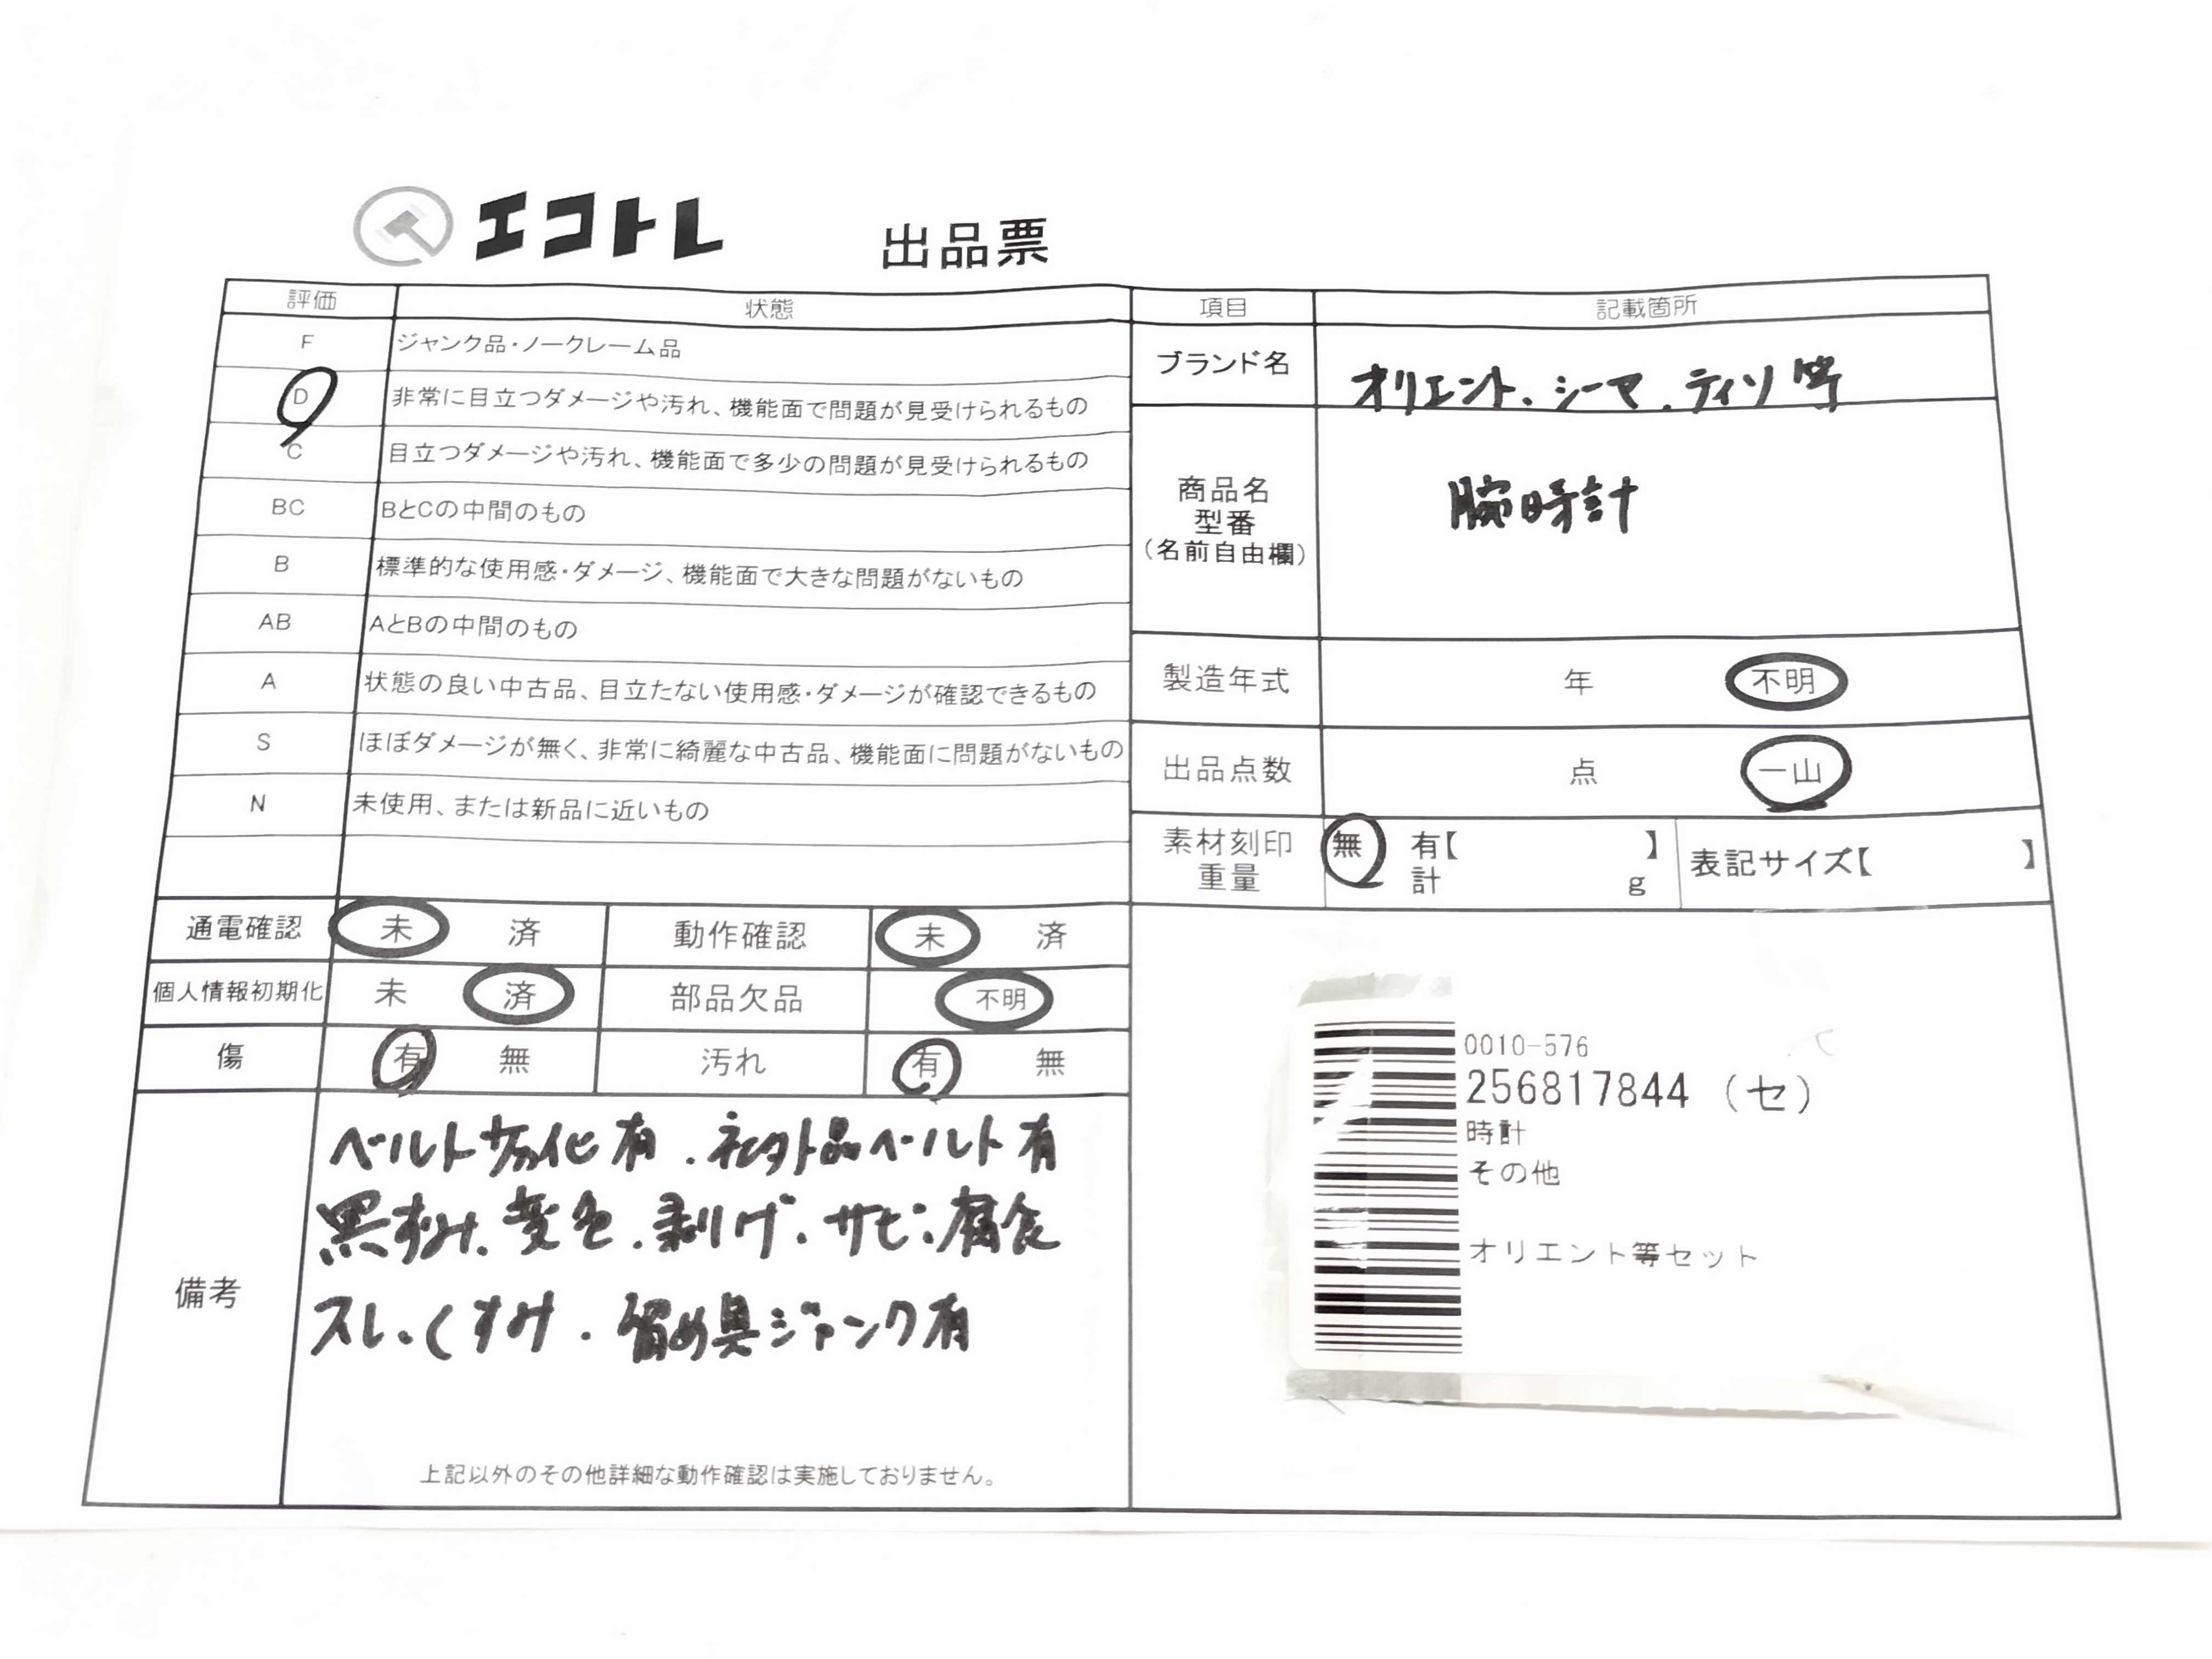 エコトレ 出品票
評価 状態 項目 記載箇所
F ジャンク品・ノークレーム品
D 非常に目立つダメージや汚れ、機能面で問題が見受けられるもの
C 目立つダメージや汚れ、機能面で多少の問題が見受けられるもの
BC BとCの中間のもの
B 標準的な使用感・ダメージ、機能面で大きな問題がないもの
AB AとBの中間のもの
A 状態の良い中古品、目立たない使用感・ダメージが確認できるもの
S ほぼダメージが無く、非常に綺麗な中古品、機能面に問題がないもの
N 未使用、または新品に近いもの
ブランド名 オリエント、シーマ、ティソ等
商品名
型番
（名前自由欄）
腕時計
製造年式 年 不明
出品点数 点 一山
素材刻印
重量
無 有【 】
計 g
表記サイズ【 】
通電確認 未 済 動作確認 未 済
個人情報初期化 未 済 部品欠品 不明
傷 有 無 汚れ 有 無
備考
ベルト劣化有、社外品ベルト有
黒ずみ、変色、剥げ、サビ、腐食
スレ、くすみ、留め具ジャンク有
上記以外のその他詳細な動作確認は実施しておりません。
0010-576
256817844（セ）
時計
その他
オリエント等セット